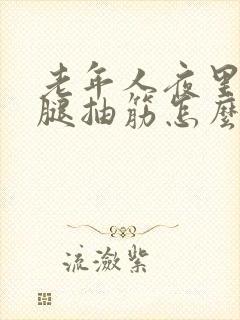 老年人夜里
腿抽筋怎麼
流潋紫